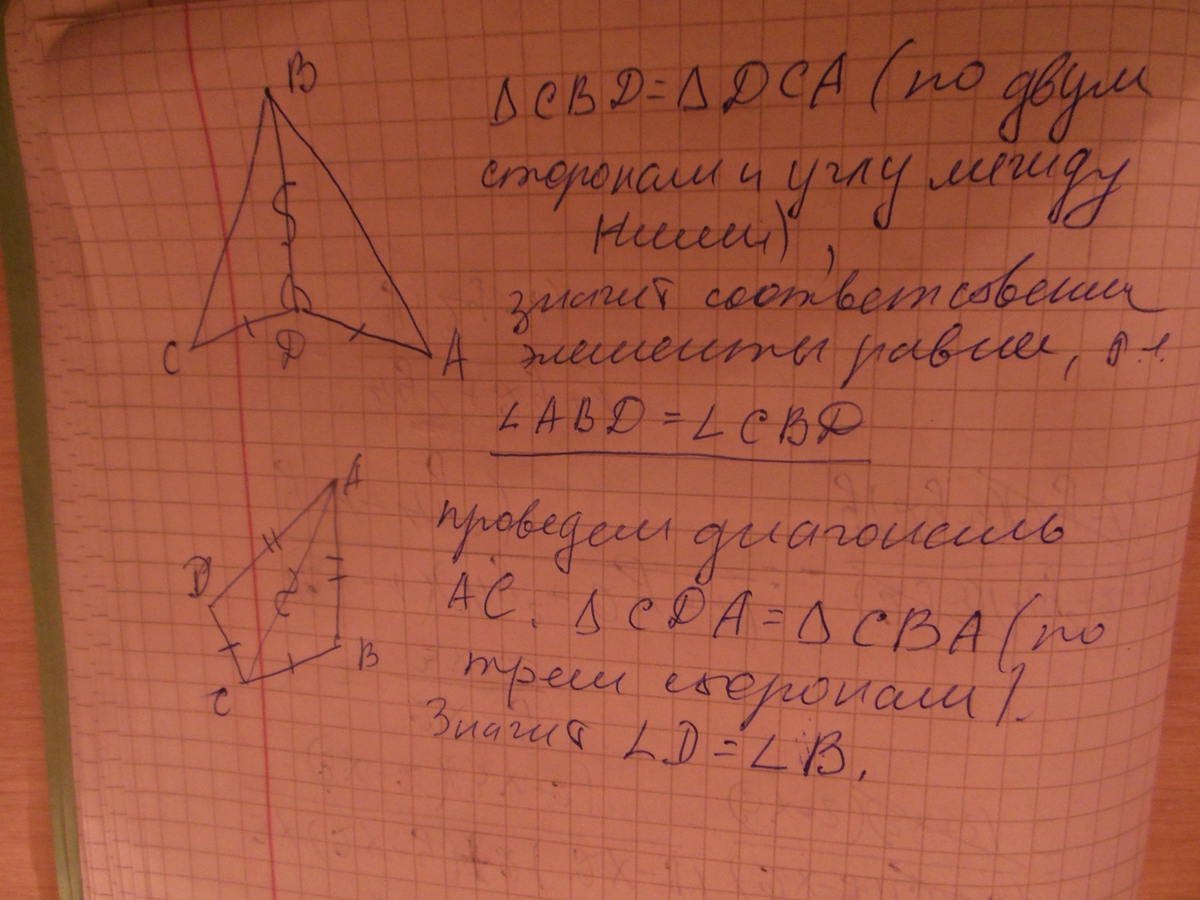 B
C
D
A
∆CBD=∆DCA (по двум
сторонам и углу между
ними),
значит соответствени
элементы равны, т.е.
∠ABD=∠CBD
A
D
B
C
проведем диагональ
AC. ∆CDA=∆CBA (по
трем сторонам).
Значит ∠D=∠B.